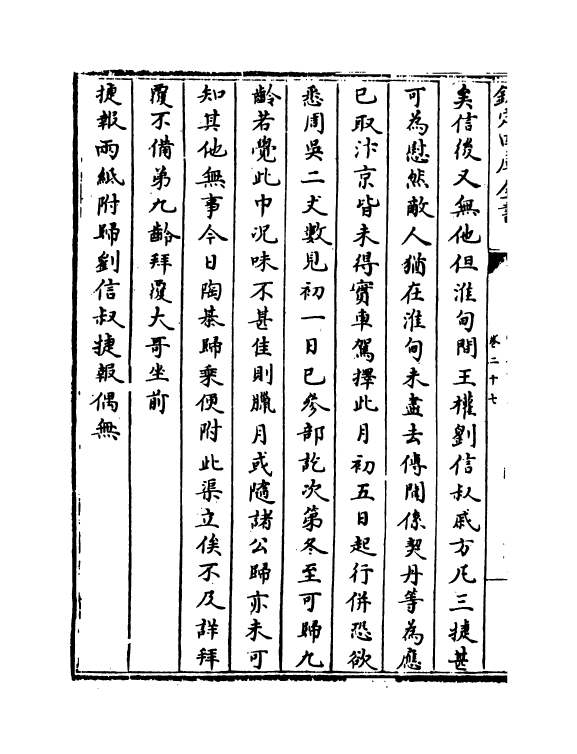 欽定四庫全書
卷二十七
矣信後又無他但淮甸間王權劉信叔戚方凡三捷甚
可為慰然敵人猶在淮甸未盡去傳聞係契丹等為應
已取汴京皆未得實車駕擇此月初五日起行併恐欲
悉周吳二丈數見初一日已參部訖次第冬至可歸九
齡若覺此中况味不甚佳則臘月或隨諸公歸亦未可
知其他無事今日陶綦歸乘便附此渠立俟不及詳拜
覆不備第九齡拜覆大哥坐前
捷報兩紙附歸劉信叔捷報偶無